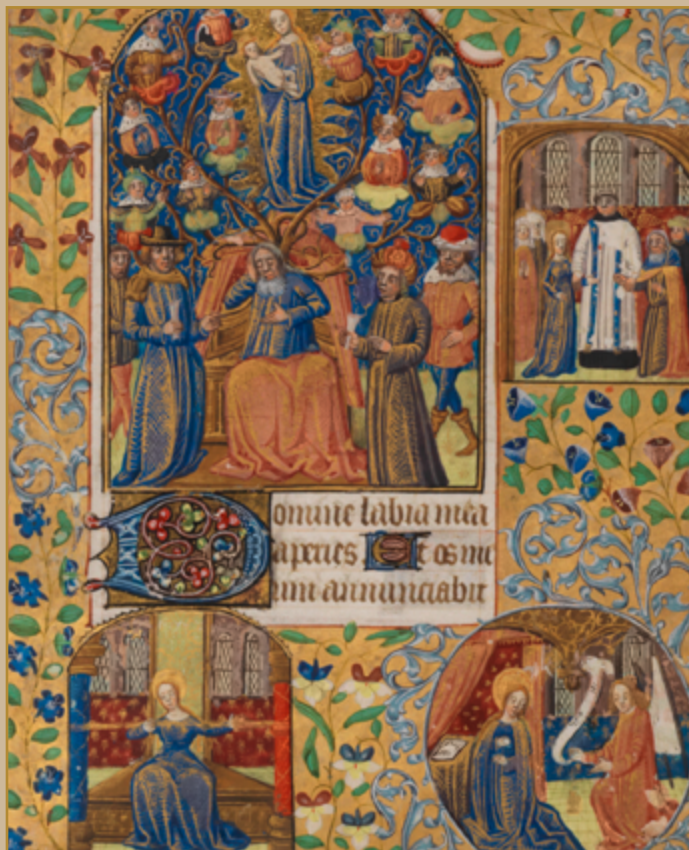 Domine labia mea
aperies Et os me
um annunciabit